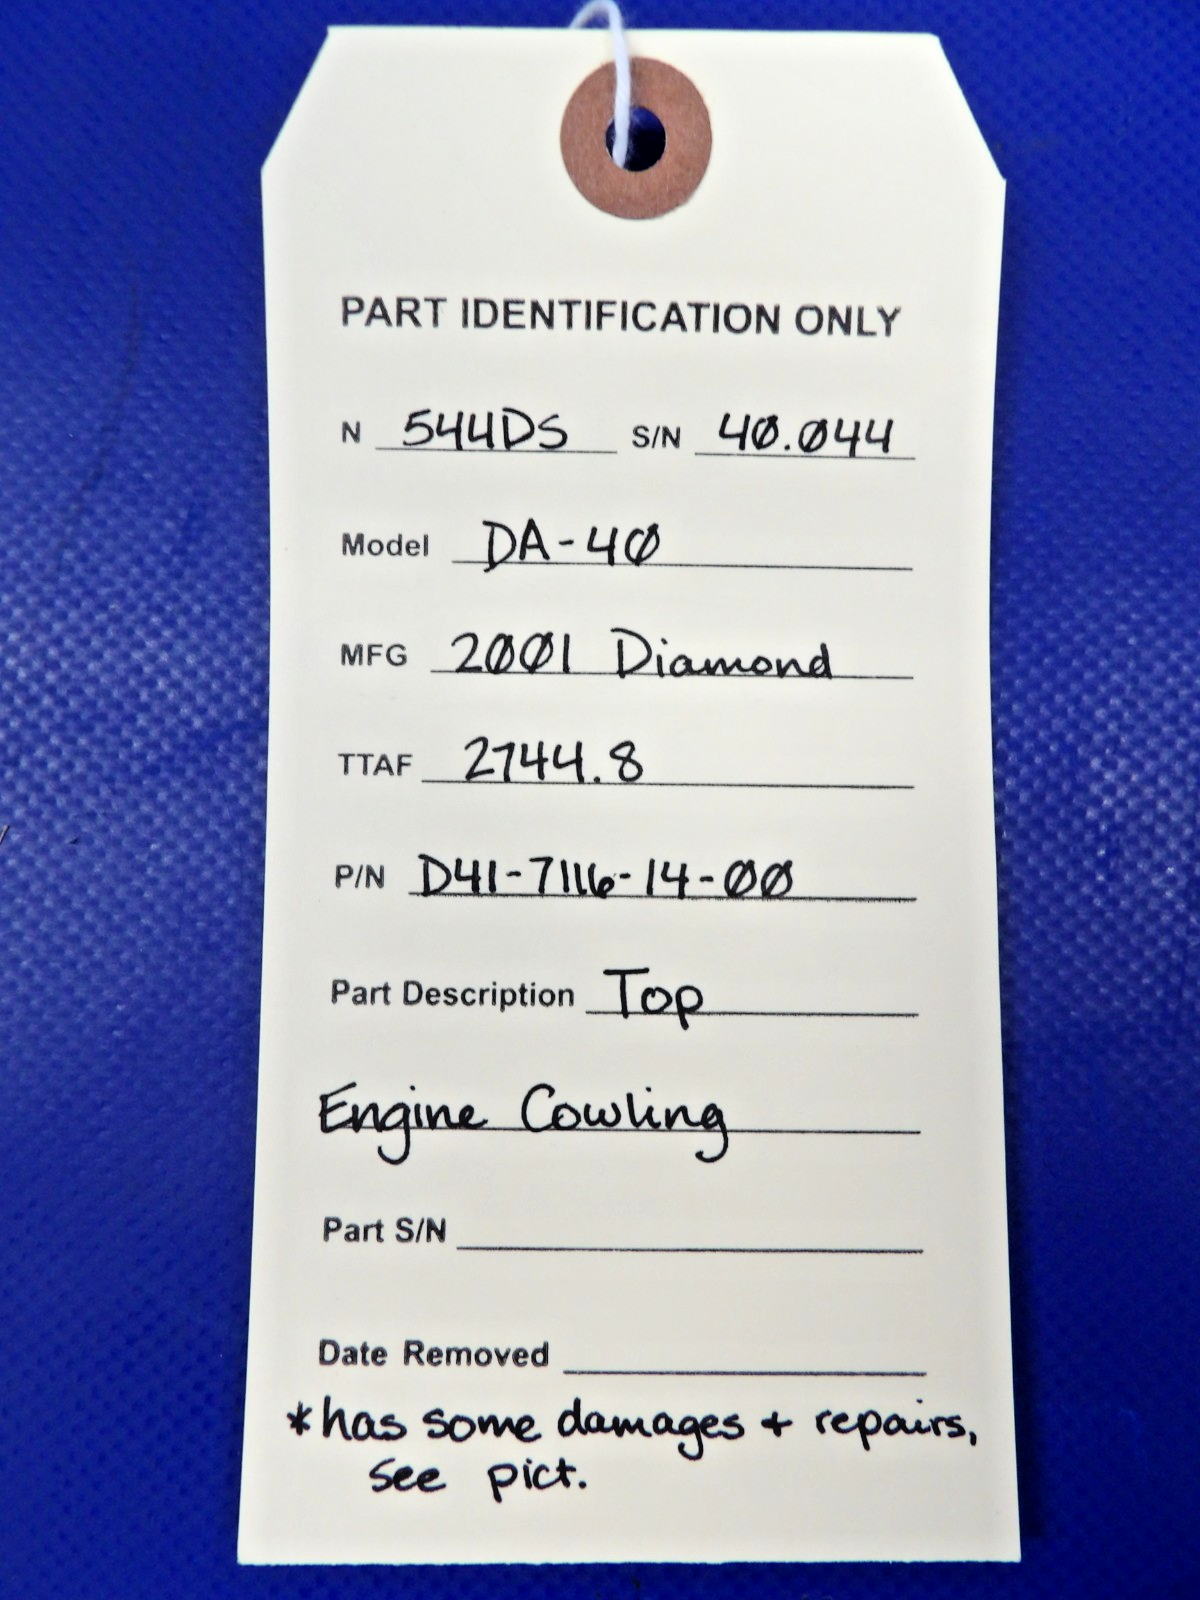 PART IDENTIFICATION ONLY
N 544DS S/N 40.044
Model DA-40
MFG 2001 Diamond
TTAF 2744.8
P/N D41-7116-14-00
Part Description Top
Engine Cowling
Part S/N
Date Removed
*has some damages + repairs,
see pict.